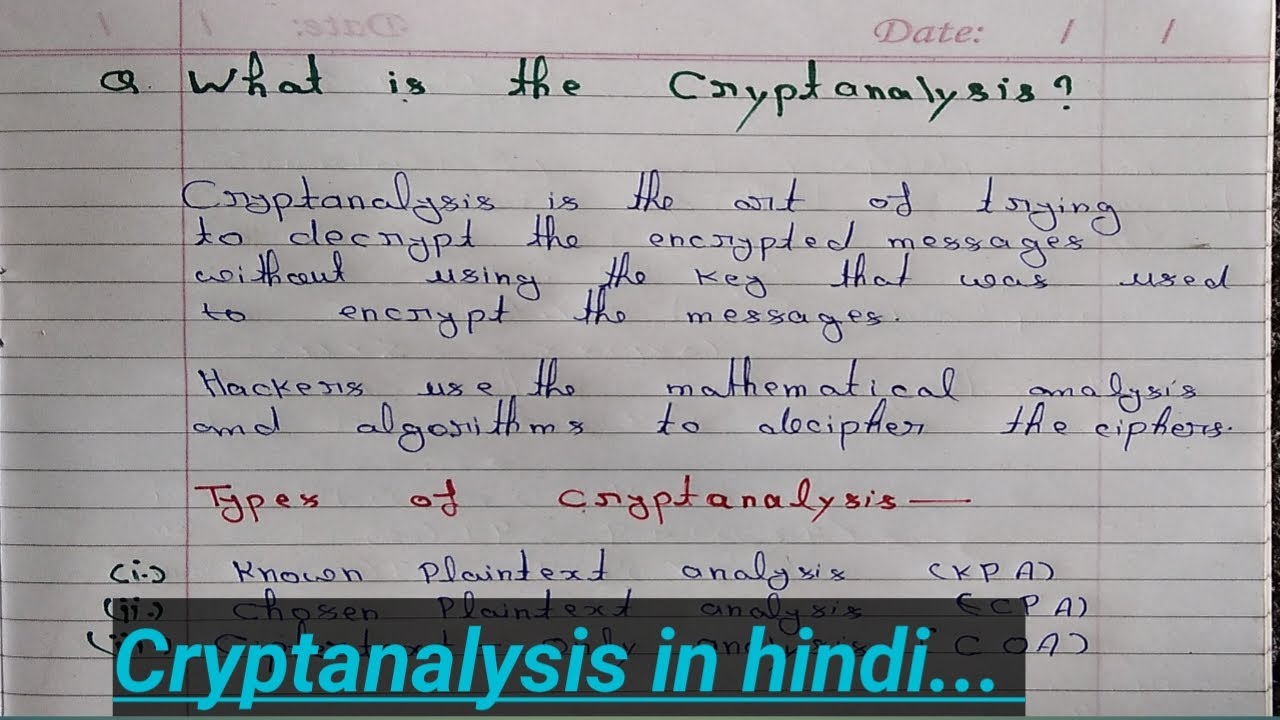 Date: / /
Q. What is the Cryptanalysis?
Cryptanalysis is the art of trying
to decrypt the encrypted messages
without using the key that was used
to encrypt the messages.
Hackers use the mathematical analysis
and algorithms to decipher the ciphers.
Types of cryptanalysis —
(i.) Known Plaintext analysis (KPA)
(ii.) Chosen Plaintext analysis (CPA)
only analysis COA)
Cryptanalysis in hindi...